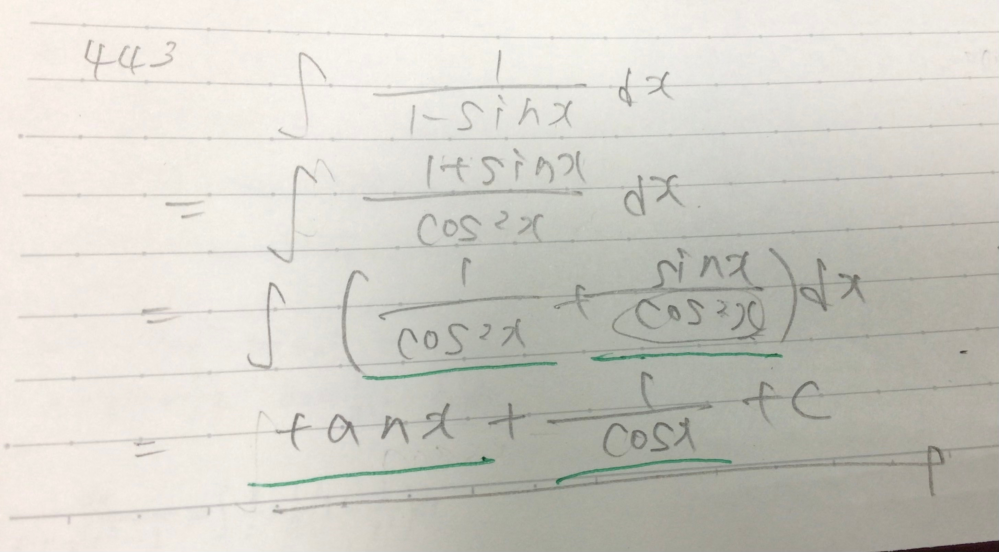 443
∫ 1/(1-sinx) dx
= ∫ (1+sinx)/(cos²x) dx
= ∫ (1/(cos²x) + sinx/(cos²x)) dx
= tanx + 1/(cosx) + C